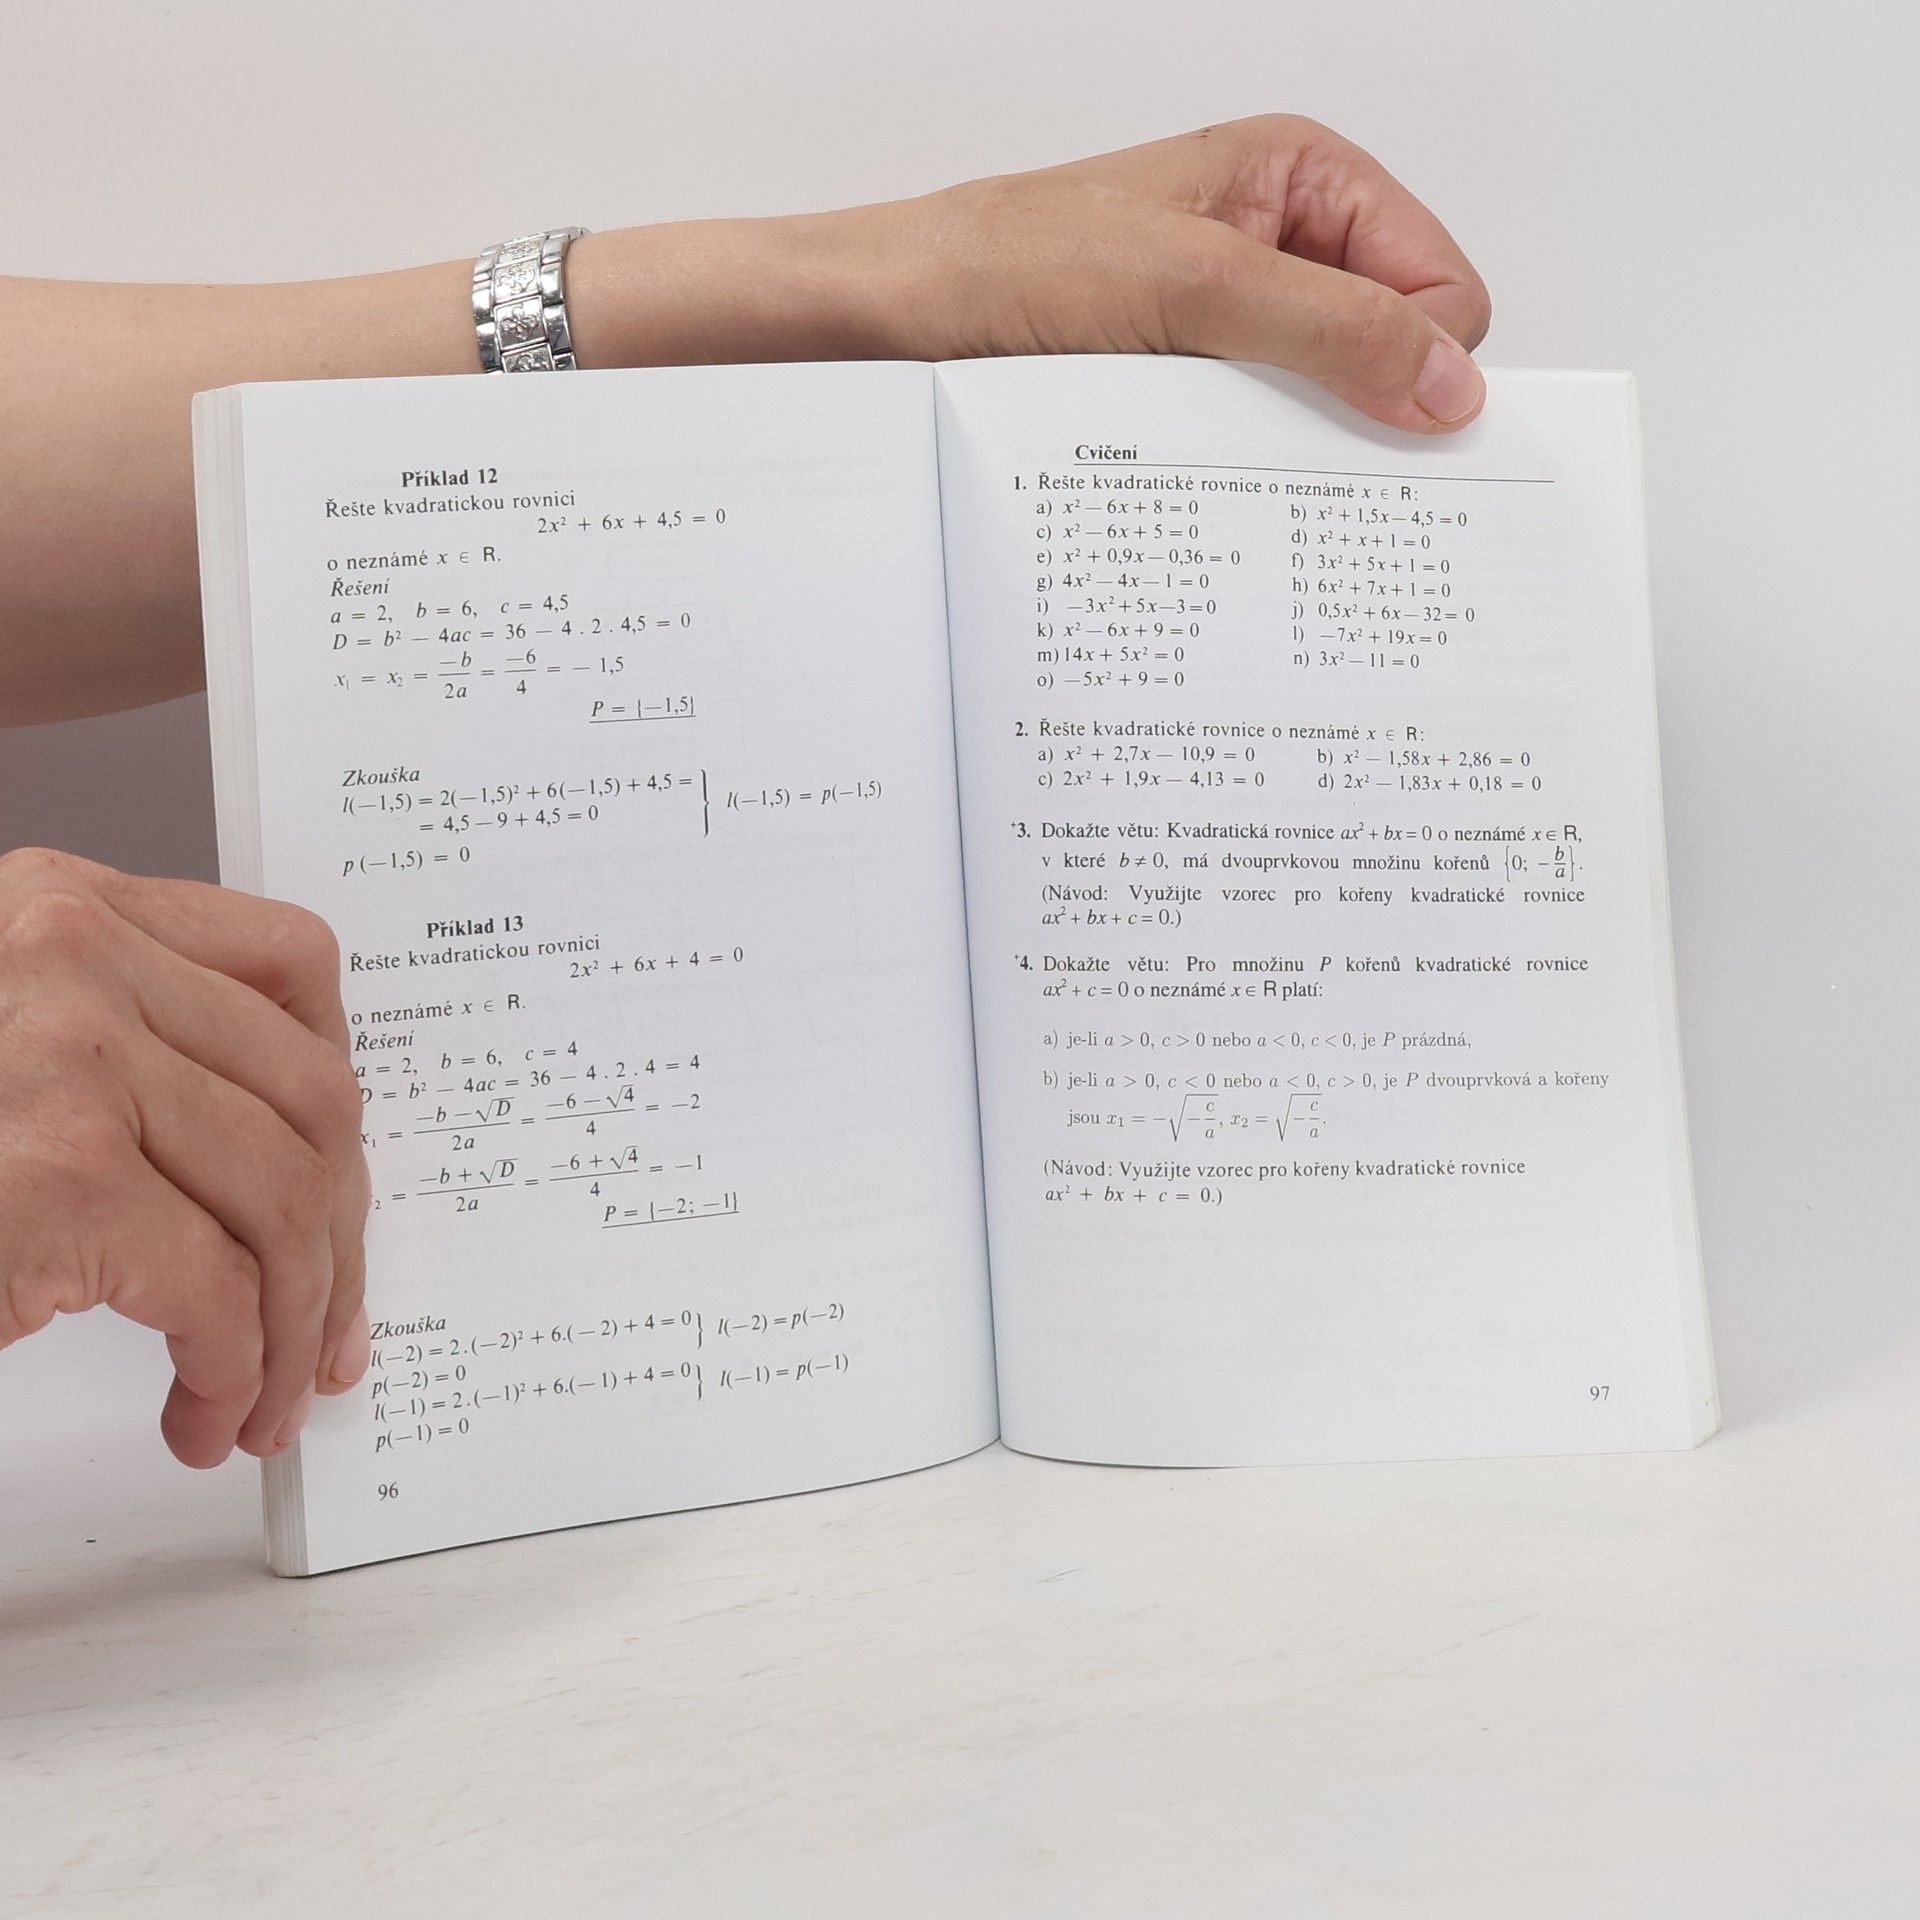 Příklad 12
Řešte kvadratickou rovnici
2x² + 6x + 4,5 = 0
o neznámé x ∈ R.
Řešení
a = 2, b = 6, c = 4,5
D = b² — 4ac = 36 — 4 . 2 . 4,5 = 0
x₁ = x₂ = —b/2a = —6/4 = — 1,5
P = {—1,5}
Zkouška
l(—1,5) = 2(—1,5)² + 6(—1,5) + 4,5 =
= 4,5 — 9 + 4,5 = 0 } l(—1,5) = p(—1,5)
p (—1,5) = 0
Příklad 13
Řešte kvadratickou rovnici
2x² + 6x + 4 = 0
o neznámé x ∈ R.
Řešení
a = 2, b = 6, c = 4
D = b² — 4ac = 36 — 4 . 2 . 4 = 4
x₁ = (—b — √D)/2a = (—6 — √4)/4 = —2
₂ = (—b + √D)/2a = (—6 + √4)/4 = —1
P = {—2; —1}
Zkouška
l(—2) = 2.(—2)² + 6.(— 2) + 4 = 0 } l(—2) = p(—2)
p(—2) = 0
l(—1) = 2.(—1)² + 6.(— 1) + 4 = 0 } l(—1) = p(—1)
p(—1) = 0
96
Cvičení
1. Řešte kvadratické rovnice o neznámé x ∈ R:
a) x² — 6x + 8 = 0 b) x² + 1,5x — 4,5 = 0
c) x² — 6x + 5 = 0 d) x² + x + 1 = 0
e) x² + 0,9x — 0,36 = 0 f) 3x² + 5x + 1 = 0
g) 4x² — 4x — 1 = 0 h) 6x² + 7x + 1 = 0
i) —3x² + 5x — 3 = 0 j) 0,5x² + 6x — 32 = 0
k) x² — 6x + 9 = 0 l) —7x² + 19x = 0
m) 14x + 5x² = 0 n) 3x² — 11 = 0
o) —5x² + 9 = 0
2. Řešte kvadratické rovnice o neznámé x ∈ R:
a) x² + 2,7x — 10,9 = 0 b) x² — 1,58x + 2,86 = 0
c) 2x² + 1,9x — 4,13 = 0 d) 2x² — 1,83x + 0,18 = 0
⁺3. Dokažte větu: Kvadratická rovnice ax² + bx = 0 o neznámé x ∈ R,
v které b ≠ 0, má dvouprvkovou množinu kořenů {0; −b/a}.
(Návod: Využijte vzorec pro kořeny kvadratické rovnice
ax² + bx + c = 0.)
⁺4. Dokažte větu: Pro množinu P kořenů kvadratické rovnice
ax² + c = 0 o neznámé x ∈ R platí:
a) je-li a > 0, c > 0 nebo a < 0, c < 0, je P prázdná,
b) je-li a > 0, c < 0 nebo a < 0, c > 0, je P dvouprvková a kořeny
jsou x₁ = −√(−c/a), x₂ = √(−c/a).
(Návod: Využijte vzorec pro kořeny kvadratické rovnice
ax² + bx + c = 0.)
97